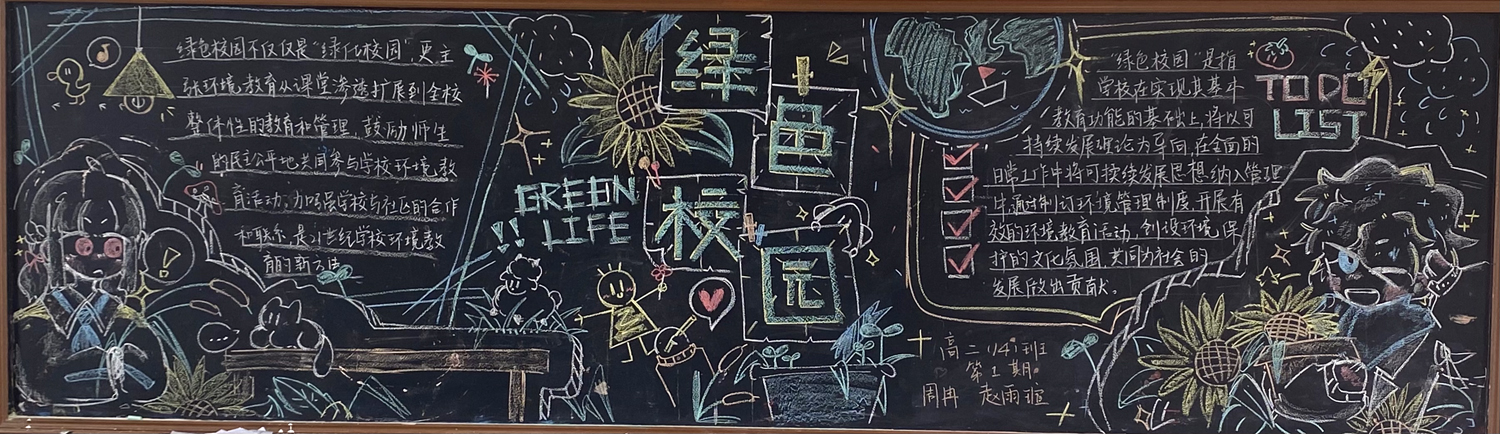 绿色校园不仅仅是“绿化校园”，更主
张环境教育从课堂渗透扩展到全校
整体性的教育和管理，鼓励师生
的民主公平地共同参与学校环境教
育活动，加强学校与社区的合作
和联系，是21世纪学校环境教
育的新方法
GREEN
LIFE
!!
绿
色
校
园
TO DO
LIST
“绿色校园”是指
学校在实现其基本
教育功能的基础上，将以可
持续发展理论为导向，在全面的
日常工作中将可持续发展思想纳入管理
中，通过制订环境管理制度，开展有
效的环境教育活动，创设环境保
护的文化氛围，共同为社会的
发展做出贡献。
高二（14）班
第1期。
周冉 赵雨班